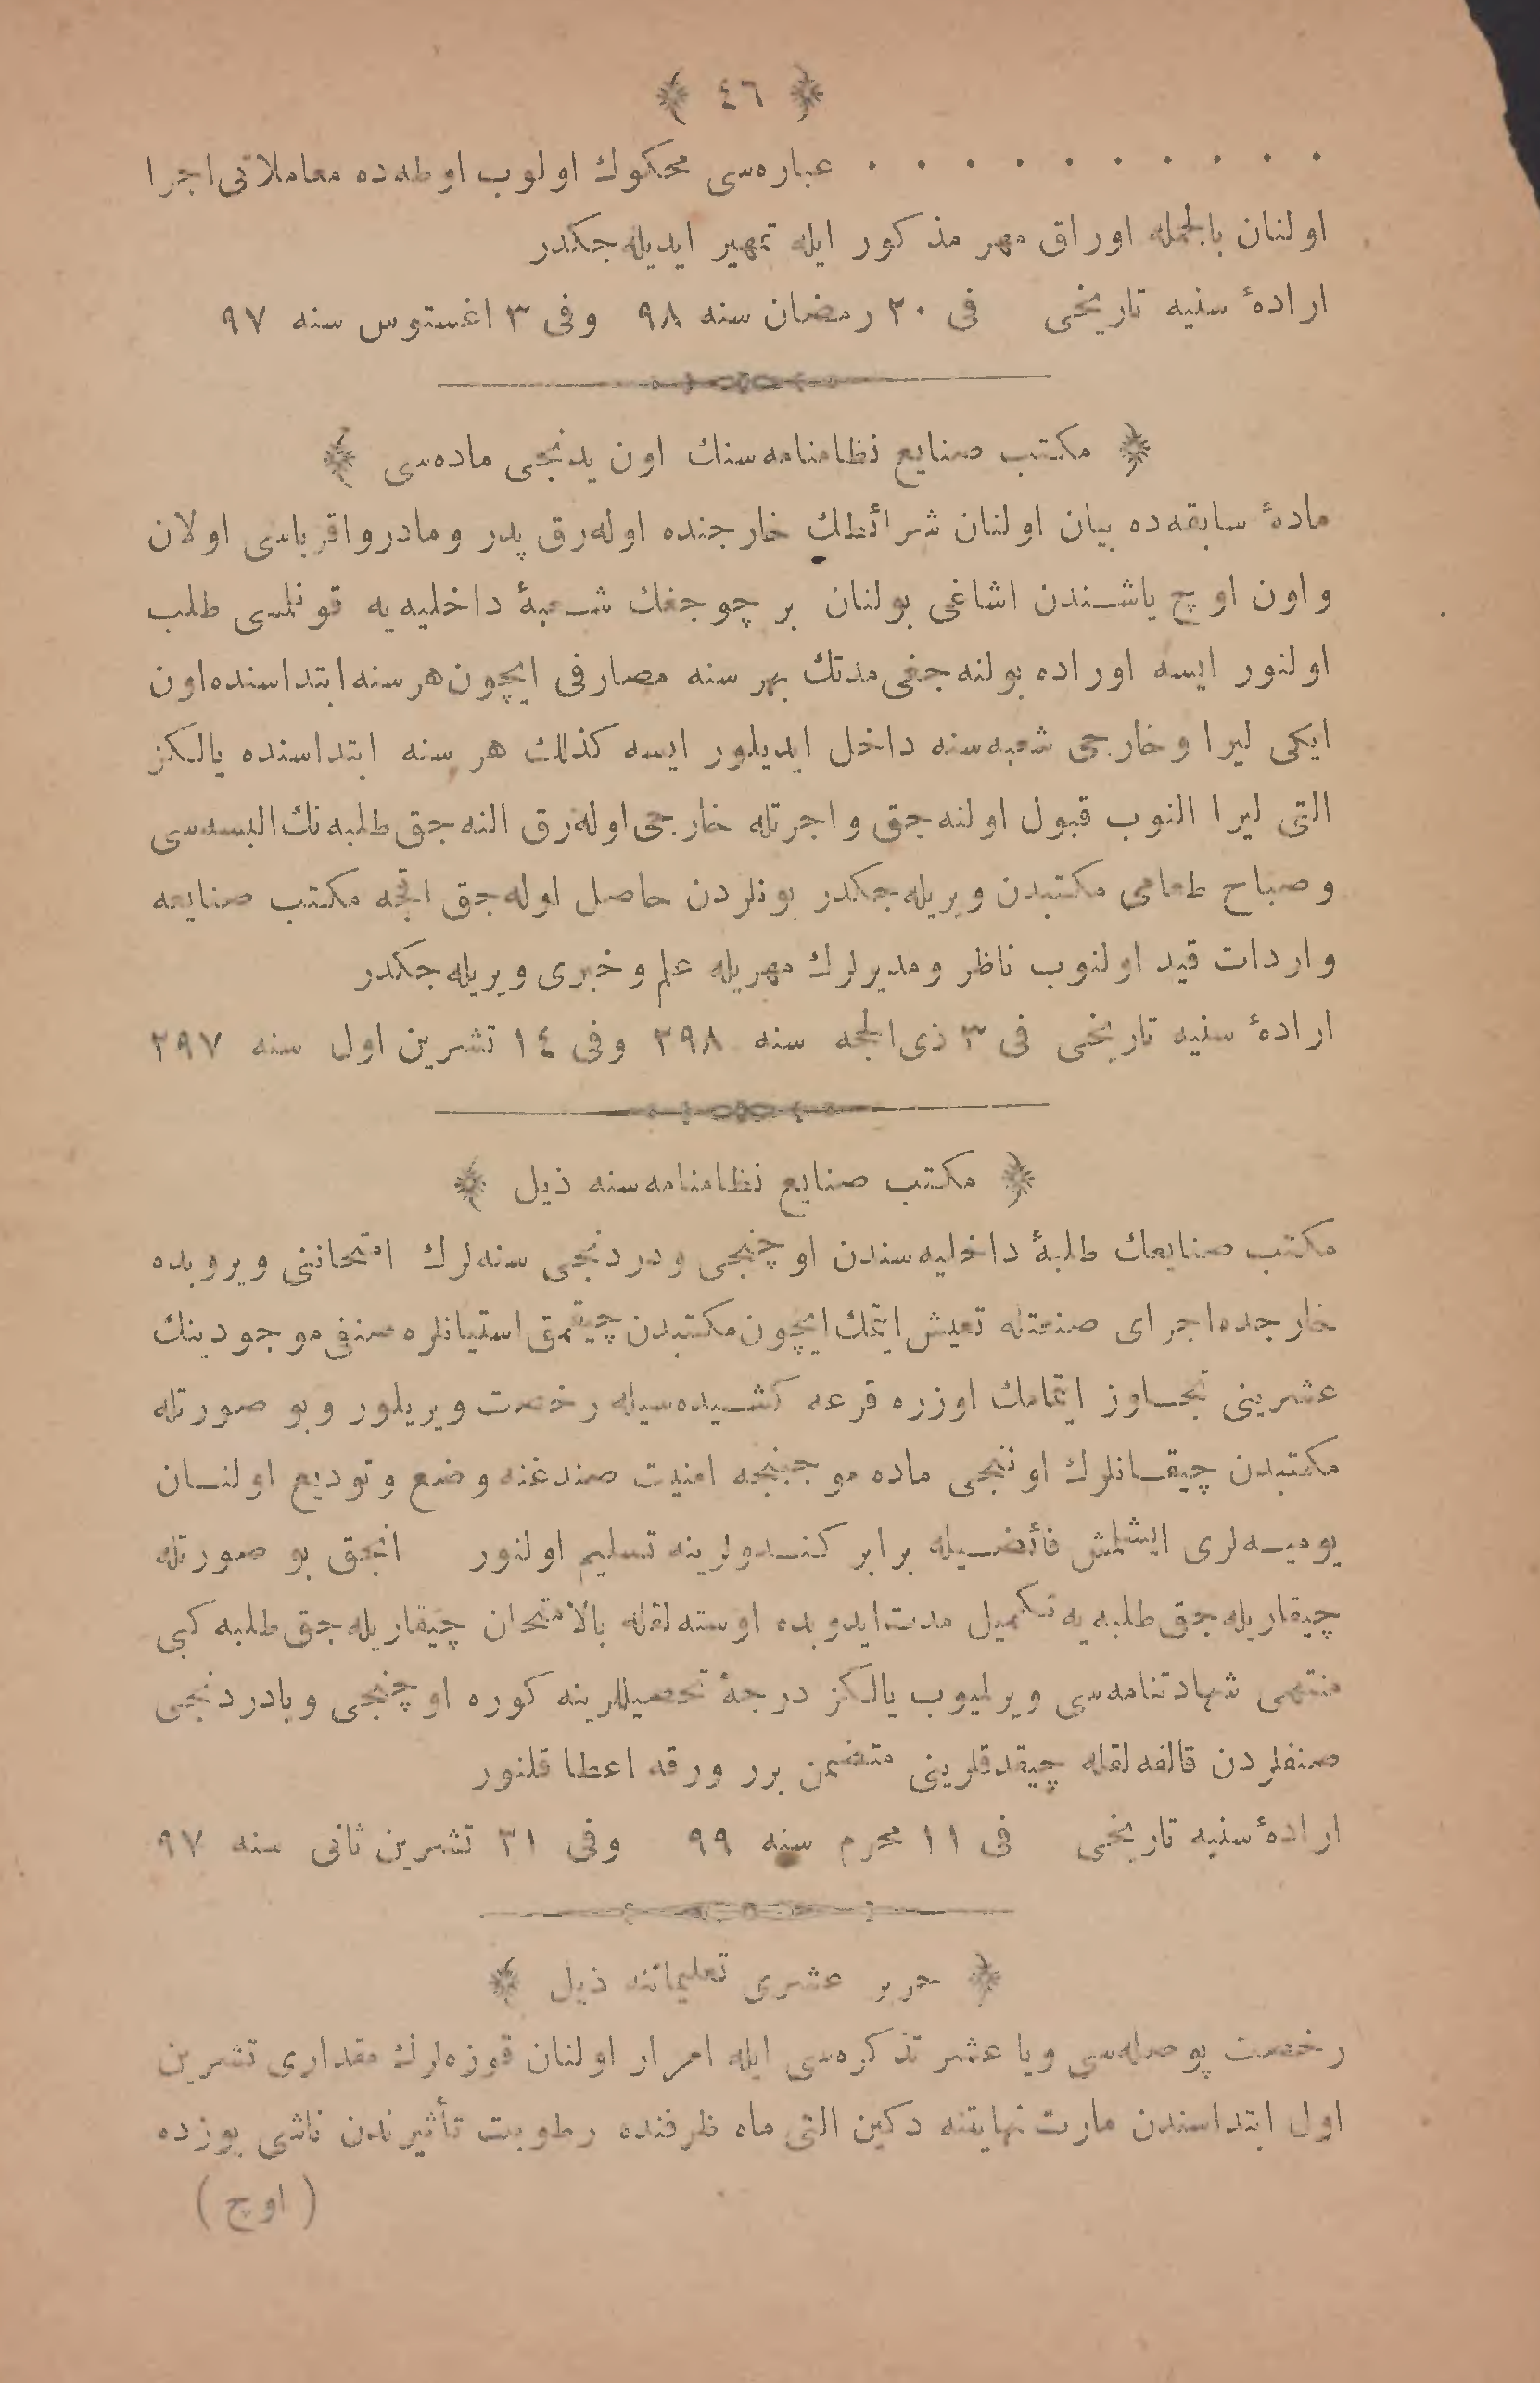 ﴿ ٤٦ ﴾
. . . . . . . . . . عباره‌سی محكوك اولوب اوطه‌ده معاملاتی اجرا
اولنان بالجمله اوراق مهر مذكور ایله تمهیر ایدیله‌جكدر
ارادهٔ سنیه تاریخی فی ٢٠ رمضان سنه ٩٨ وفی ٣ اغستوس سنه ٩٧
﴿ مكتب صنایع نظامنامه‌سنك اون یدنجی ماده‌سی ﴾
مادهٔ سابقه‌ده بیان اولنان شرائطك خارجنده اوله‌رق پدر ومادر واقرباسی اولان
واون اوچ یاشندن اشاغی بولنان بر چوجغك شعبهٔ داخلیه‌یه قونلسی طلب
اولنور ایسه اوراده بولنه‌جغی مدتك بهر سنه مصارفی ایچون هر سنه ابتداسنده اون
ایكی لیرا وخارجی شعبه‌سنه داخل ایدیلور ایسه كذلك هر سنه ابتداسنده یالكز
التی لیرا النوب قبول اولنه‌جق واجرتله خارجی اوله‌رق النه‌جق طلبه‌نك البسه‌سی
وصباح طعامی مكتبدن ویریله‌جكدر بونلردن حاصل اوله‌جق اقچه مكتب صنایعه
واردات قید اولنوب ناظر ومدیرلرك مهریله علم وخبری ویریله‌جكدر
ارادهٔ سنیه تاریخی فی ٣ ذی الحجه سنه ٢٩٨ وفی ١٤ تشرین اول سنه ٢٩٧
﴿ مكتب صنایع نظامنامه‌سنه ذیل ﴾
مكتب صنایعك طلبهٔ داخلیه‌سندن اوچنجی ودردنجی سنه‌لرك امتحاننی ویروبده
خارجده اجرای صنعتله تعیش ایتمك ایچون مكتبدن چیقمق استیانلره صنفی موجودینك
عشرینی تجاوز ایتمامك اوزره قرعه كشیده‌سیله رخصت ویریلور وبو صورتله
مكتبدن چیقانلرك اوننجی ماده موجبنجه امنیت صندغنه وضع وتودیع اولنان
یومیه‌لری ایشلمش فائضیله برابر كندولرینه تسلیم اولنور انجق بو صورتله
چیقاریله‌جق طلبه‌یه تكمیل مدت ایدوبده اوسته‌لقله بالامتحان چیقاریله‌جق طلبه كبی
منتهی شهادتنامه‌سی ویرلمیوب یالكز درجهٔ تحصیللرینه كوره اوچنجی ویادردنجی
صنفلردن قالفه‌لقله چیقدقلرینی متضمن برر ورقه اعطا قلنور
ارادهٔ سنیه تاریخی فی ١١ محرم سنه ٩٩ وفی ٢١ تشرین ثانی سنه ٩٧
﴿ حریر عشری تعلیماتنه ذیل ﴾
رخصت پوصله‌سی ویا عشر تذكره‌سی ایله امرار اولنان قوزه‌لرك مقداری تشرین
اول ابتداسندن مارت نهایتنه دكین التی ماه ظرفنده رطوبت تأثیرندن ناشی یوزده
( اوچ )